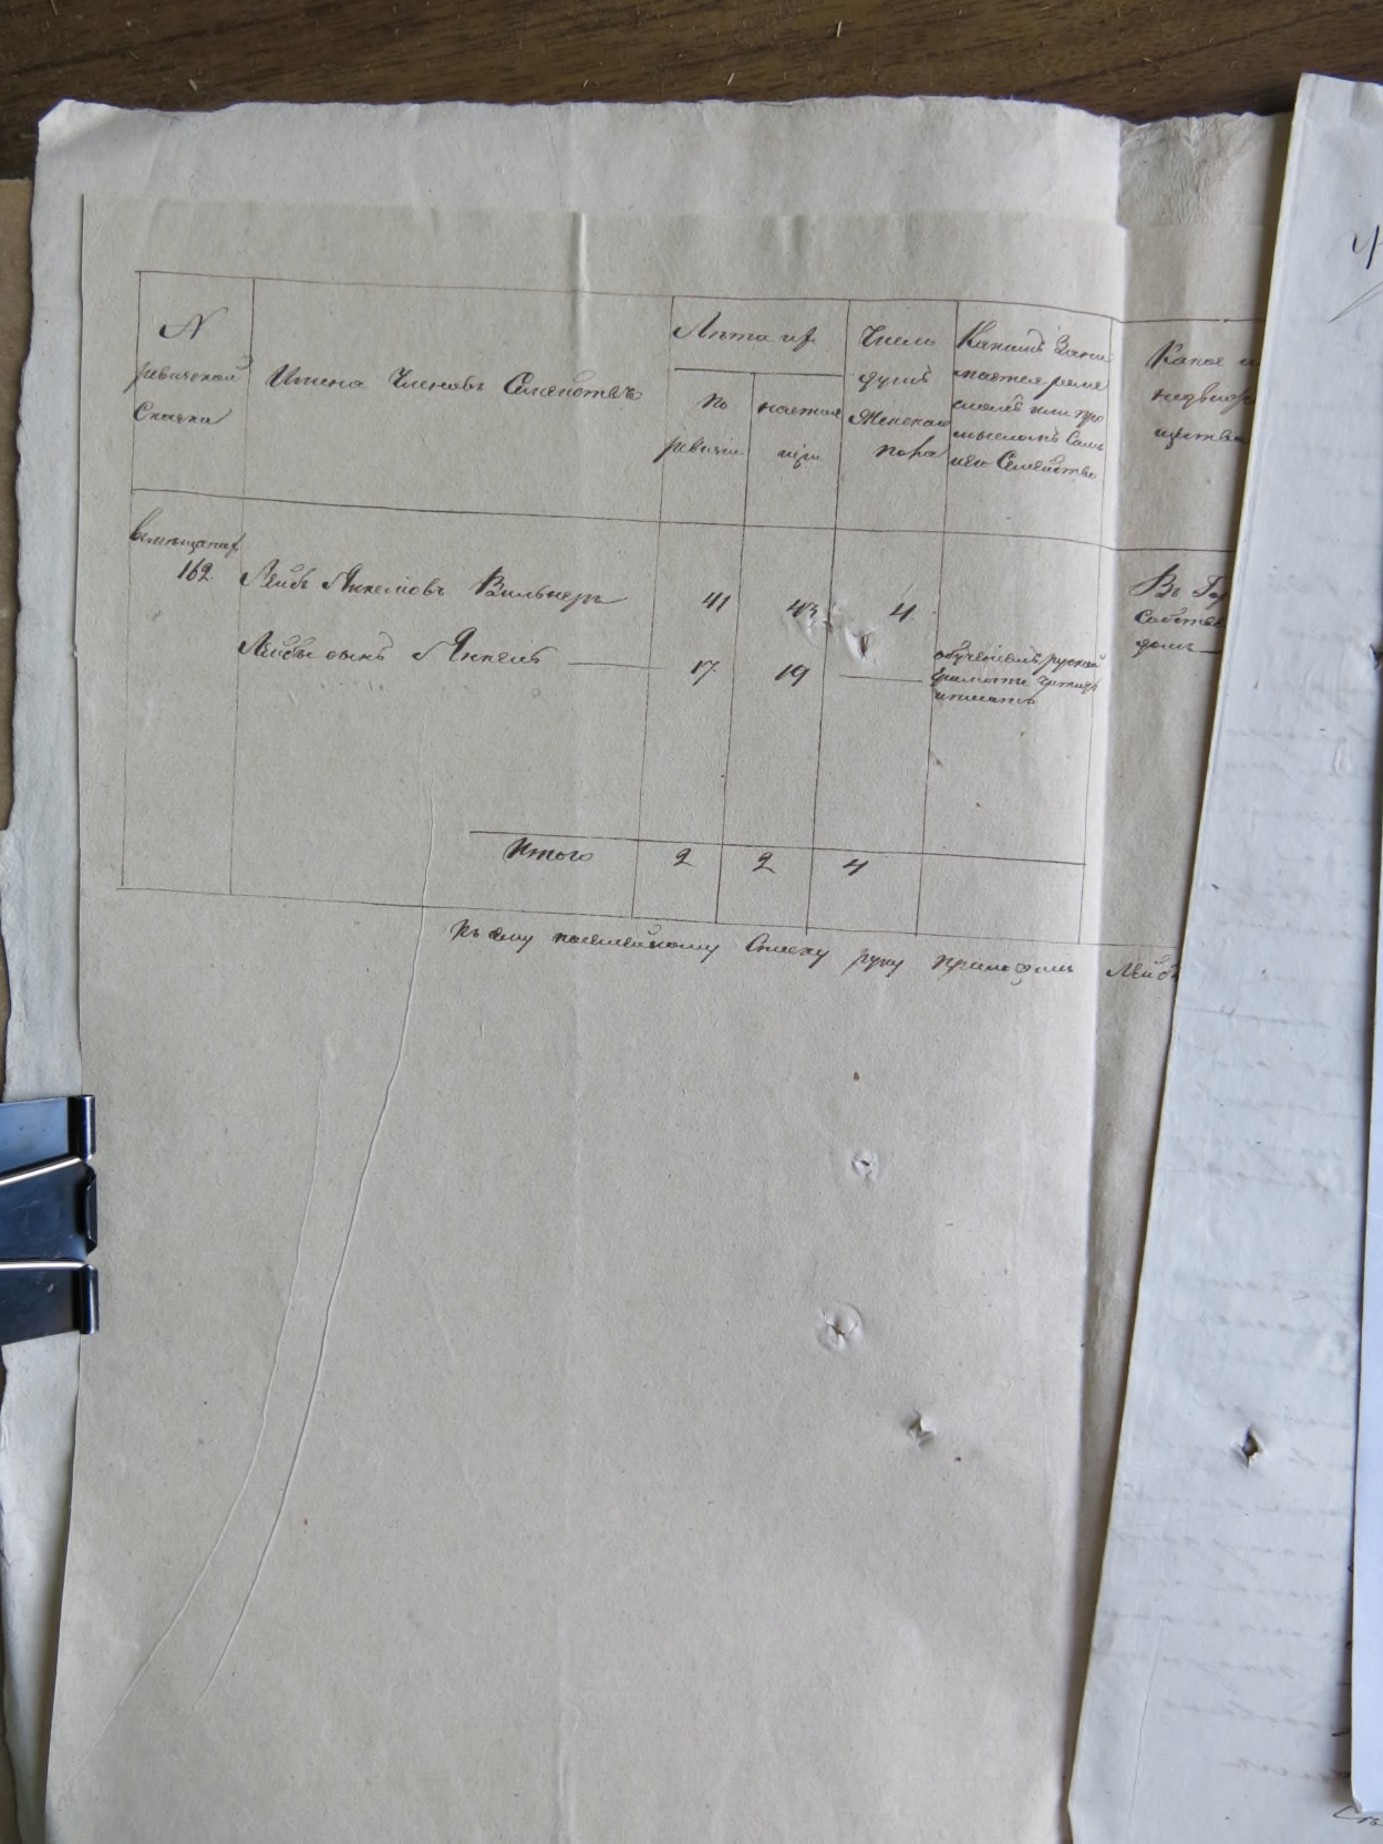 N
ревизской
Сказки
Имена Членовъ Семействъ
Лѣта ихъ
по
ревизіи
настоя
щіи
Число
душъ
Женскаго
пола
Какимъ Зани
мается реме
сломъ или про
мысломъ Самъ
и его Семейство
Какое и
недвиж
имуще
162
Лейбъ Янкелiовъ Вильнеръ
41
43
4
Въ Го
собствен
домъ
Лейбы сынъ Янкель
17
19
обучениемъ руской
грамоты читать
и писать
Итого
2
2
4
Къ сему посемейному Списку руку приложилъ Лейбъ